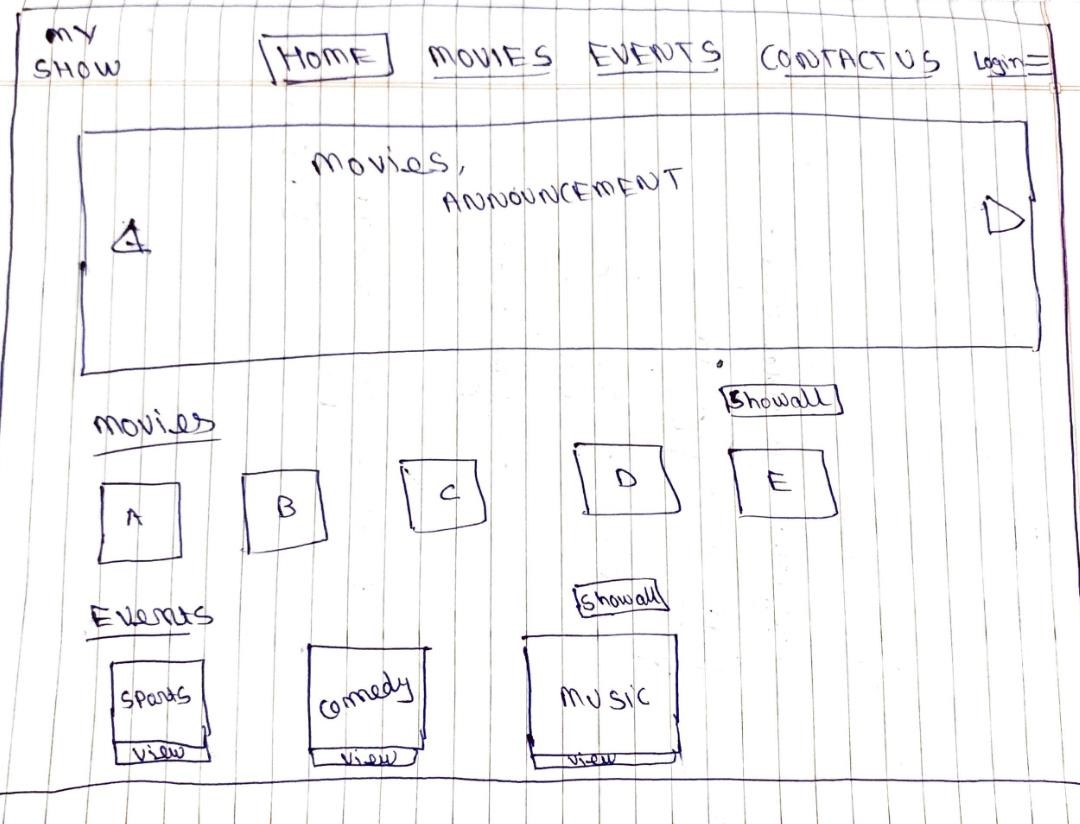 MY
SHOW
HOME MOVIES EVENTS CONTACT US Login
Movies,
ANNOUNCEMENT
Movies
Showall
A B C D E
Events
Showall
Sports Comedy MUSIC
View View View